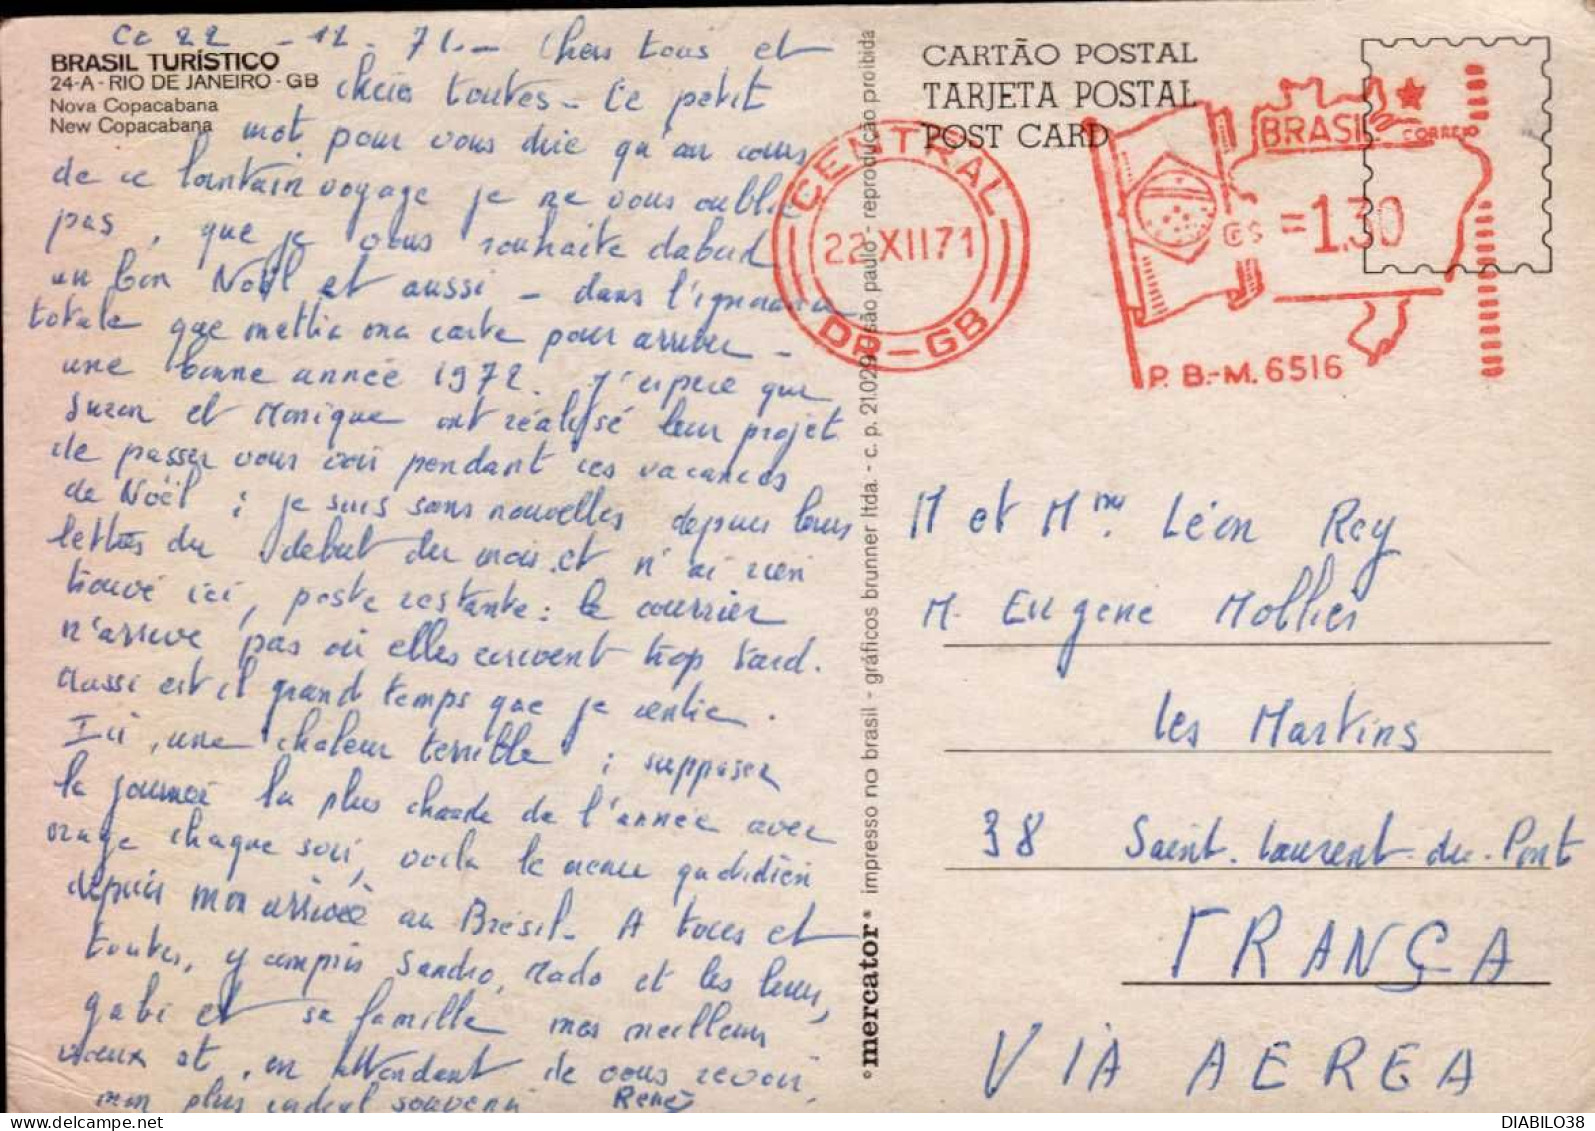 BRASIL TURÍSTICO
24-A - RIO DE JANEIRO - GB
Nova Copacabana
New Copacabana
Ce 22 - 12 - 71 - Chers tous et
chères toutes - Ce petit
mot pour vous dire qu'au cours
de ce lointain voyage je ne vous oublie
pas, que je vous souhaite dabord
un bon Noël et aussi - dans l'ignorance
totale que mettra ma carte pour arriver -
une bonne année 1972. J'espère que
Suzon et Monique ont réalisé leur projet
de passer vous voir pendant ces vacances
de Noël ; je suis sans nouvelles depuis leurs
lettres du debut du mois et n'ai rien
trouvé ici, poste restante : le courrier
n'arrive pas où elles ecrivent trop tard.
Aussi est il grand temps que je rentre.
Ici, une chaleur terrible ; supposer
la journée la plus chaude de l'année avec
orage chaque soir, voila le menu quotidien
depuis mon arrivée au Brésil - A tous et
toutes, y compris Sandro, Mado et les leurs,
Gabi et sa famille mes meilleurs
voeux et, en attendant de vous revoir,
mon plus cordial souvenir René
°mercator° impresso no brasil - gráficos brunner ltda. - c. p. 21.029 - são paulo - reprodução proibida
CARTÃO POSTAL
TARJETA POSTAL
POST CARD
CENTRAL
22 XII 71
DP-GB
BRASIL CORREIO
=1,30
P. B.-M. 6516
M et Mme. Léon Rey
M. Eugene Mollier
les Martins
38 Saint-Laurent-du-Pont
FRANÇA
VIA AEREA
DIABILO38